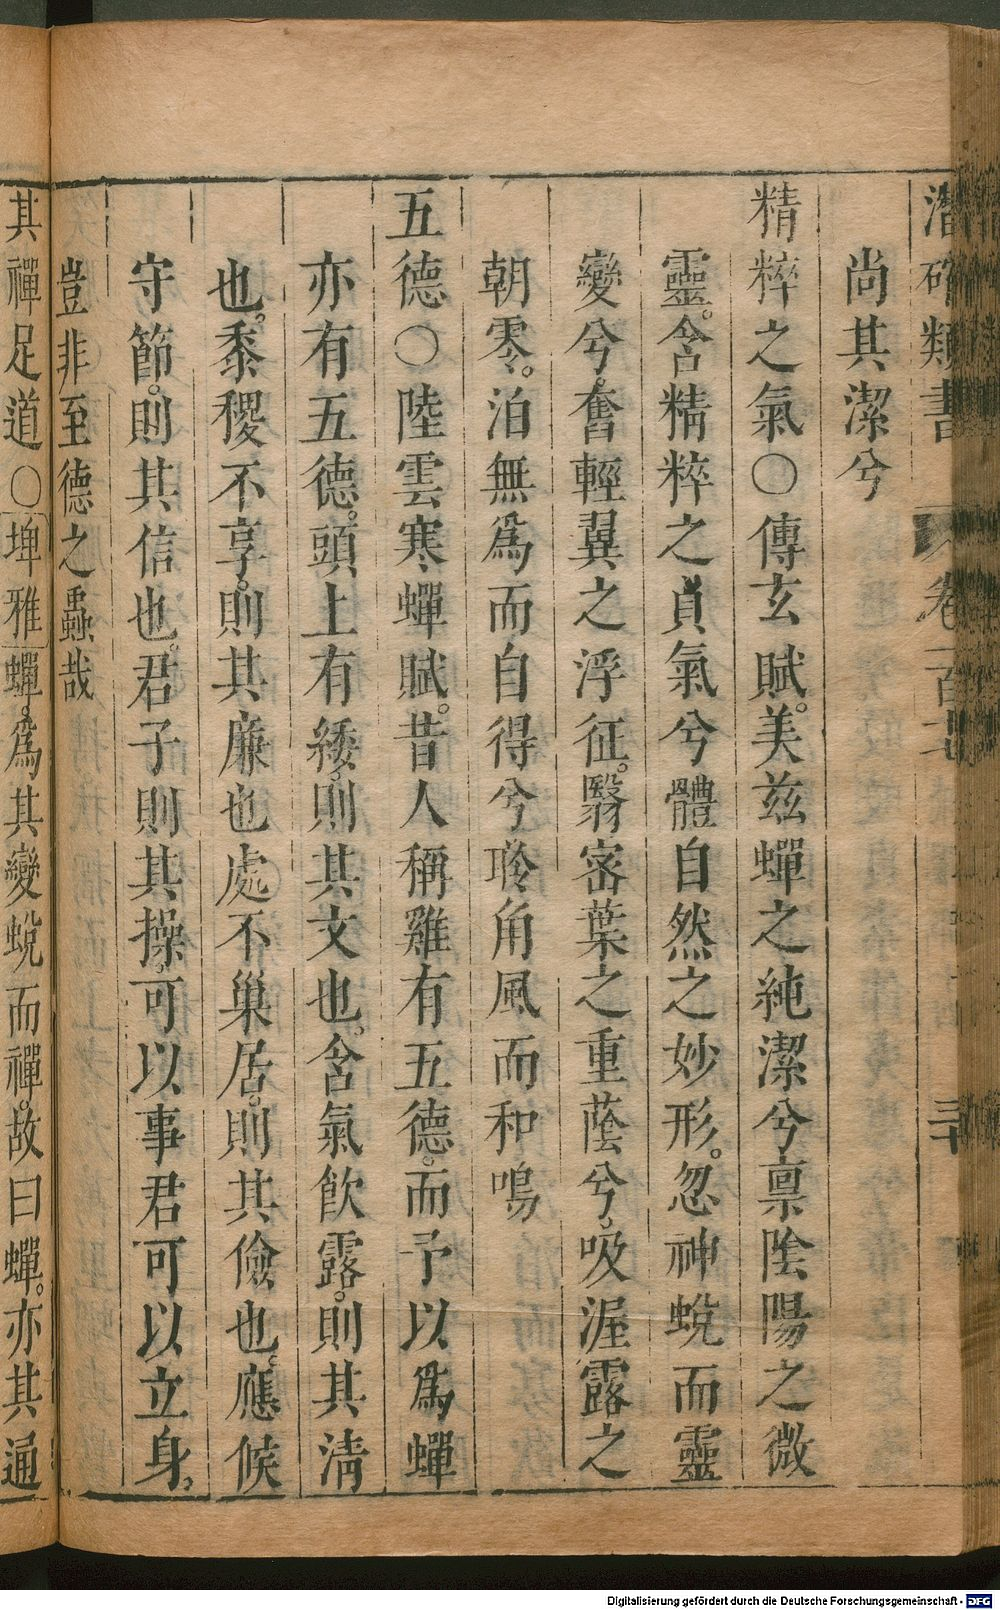 潛確類書 卷一百
尚其潔兮
精粹之氣〇傳玄賦。美茲蟬之純潔兮禀陰陽之微
靈。含精粹之貞氣兮體自然之妙形。忽神蛻而靈
變兮。奮輕翼之浮征。翳密葉之重蔭兮。吸渥露之
朝零。泊無爲而自得兮聆角風而和鳴
五德〇陸雲寒蟬賦。昔人稱雞有五德。而予以爲蟬
亦有五德。頭上有緌。則其文也。含氣飲露。則其淸
也。黍稷不享。則其廉也處不巢居。則其儉也。應候
守節。則其信也。君子則其操。可以事君可以立身。
豈非至德之蟲哉
其禪足道〇埤雅蟬。爲其變蛻而禪。故曰蟬。亦其通
Digitalisierung gefördert durch die Deutsche Forschungsgemeinschaft - DFG